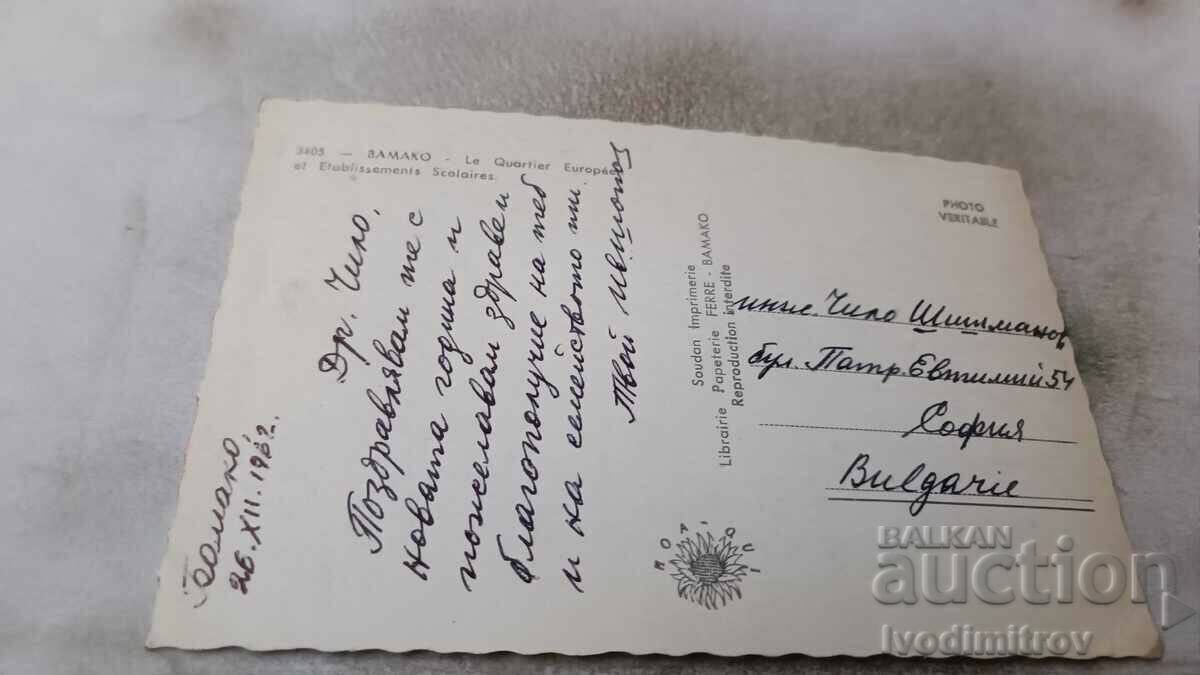 3805 — BAMAKO - Le Quartier Européen
et Etablissements Scolaires
Бамако,
26.XII.1962.
Др. Чило,
Поздравлявам те с
новата година и
пожелавам здраве и
благополучие на теб
и на семейството ти.
Твой
Soudan Imprimerie
Librairie Papeterie FERRE - BAMAKO
Reproduction interdite
PHOTO
VERITABLE
инж. Чило Шишманов
бул. Патр. Евтимий 54
София
Bulgarie
BALKAN
auction
Ivodimitrov